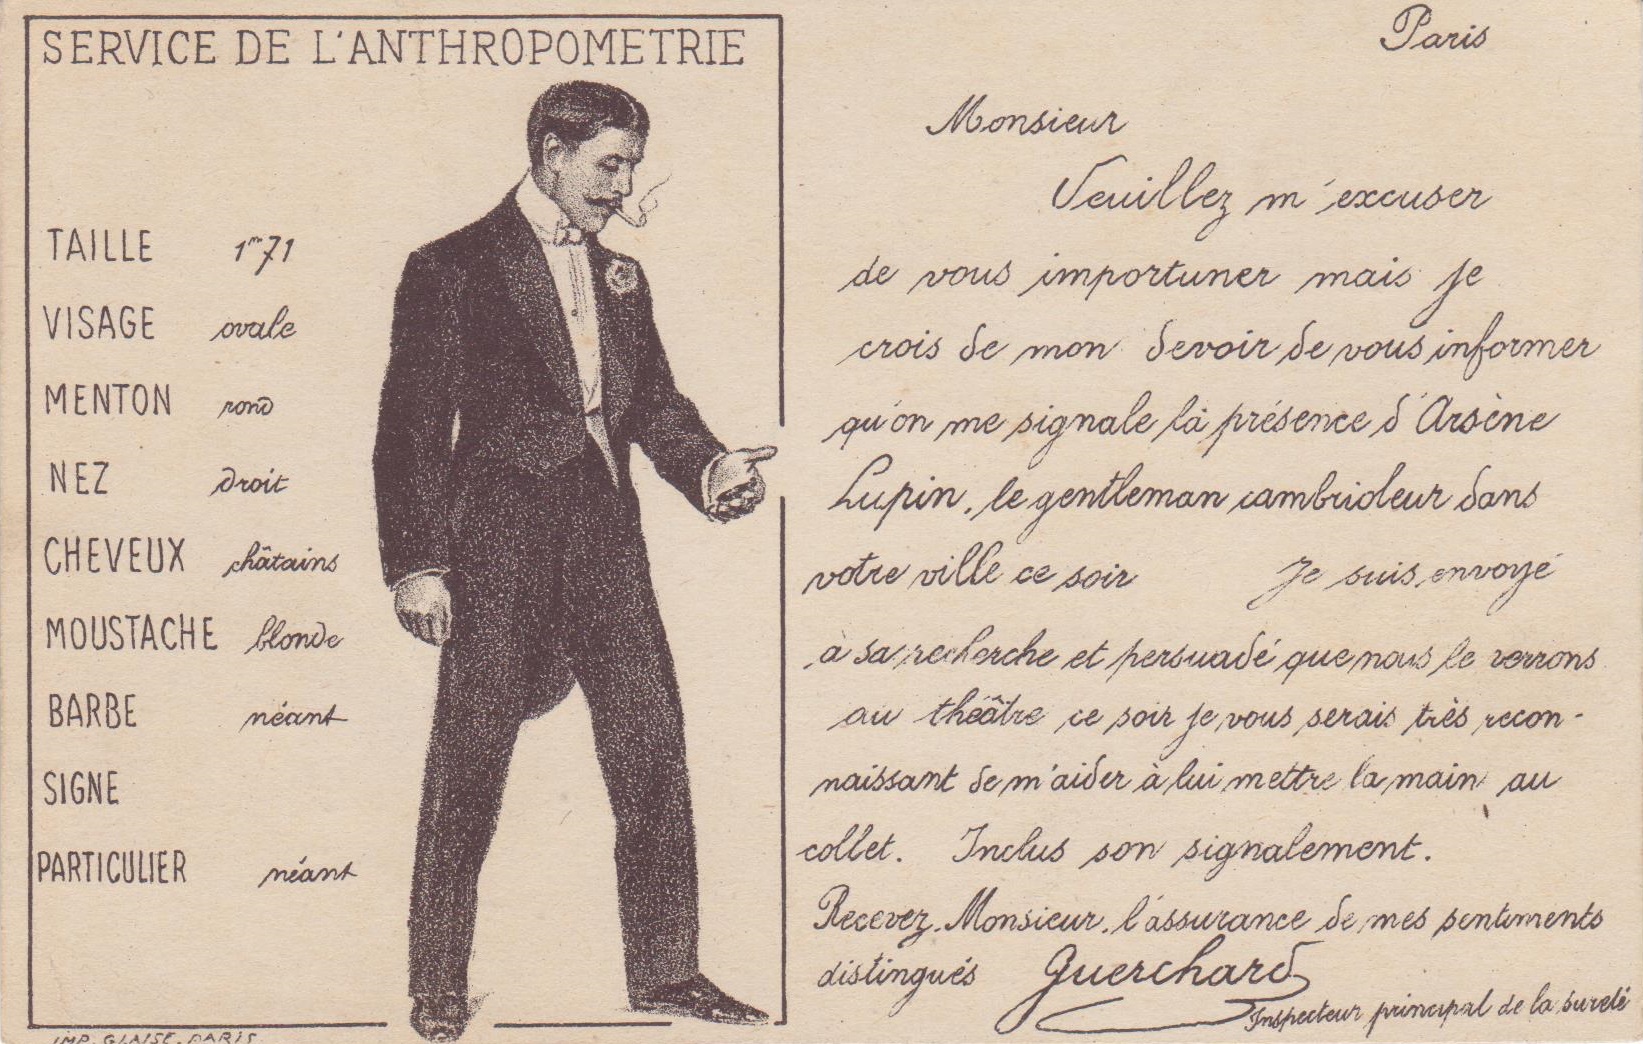 SERVICE DE L'ANTHROPOMETRIE
TAILLE 1m71
VISAGE ovale
MENTON rond
NEZ droit
CHEVEUX châtains
MOUSTACHE blonde
BARBE néant
SIGNE
PARTICULIER néant
IMP. GLAISE. PARIS
Paris
Monsieur
Veuillez m'excuser
de vous importuner mais je
crois de mon devoir de vous informer
qu'on me signale la présence d'Arsène
Lupin, le gentleman cambrioleur dans
votre ville ce soir Je suis envoyé
à sa recherche et persuadé que nous le verrons
au théâtre ce soir je vous serais très recon-
naissant de m'aider à lui mettre la main au
collet. Inclus son signalement.
Recevez, Monsieur, l'assurance de mes sentiments
distingués Guerchard
Inspecteur principal de la sureté